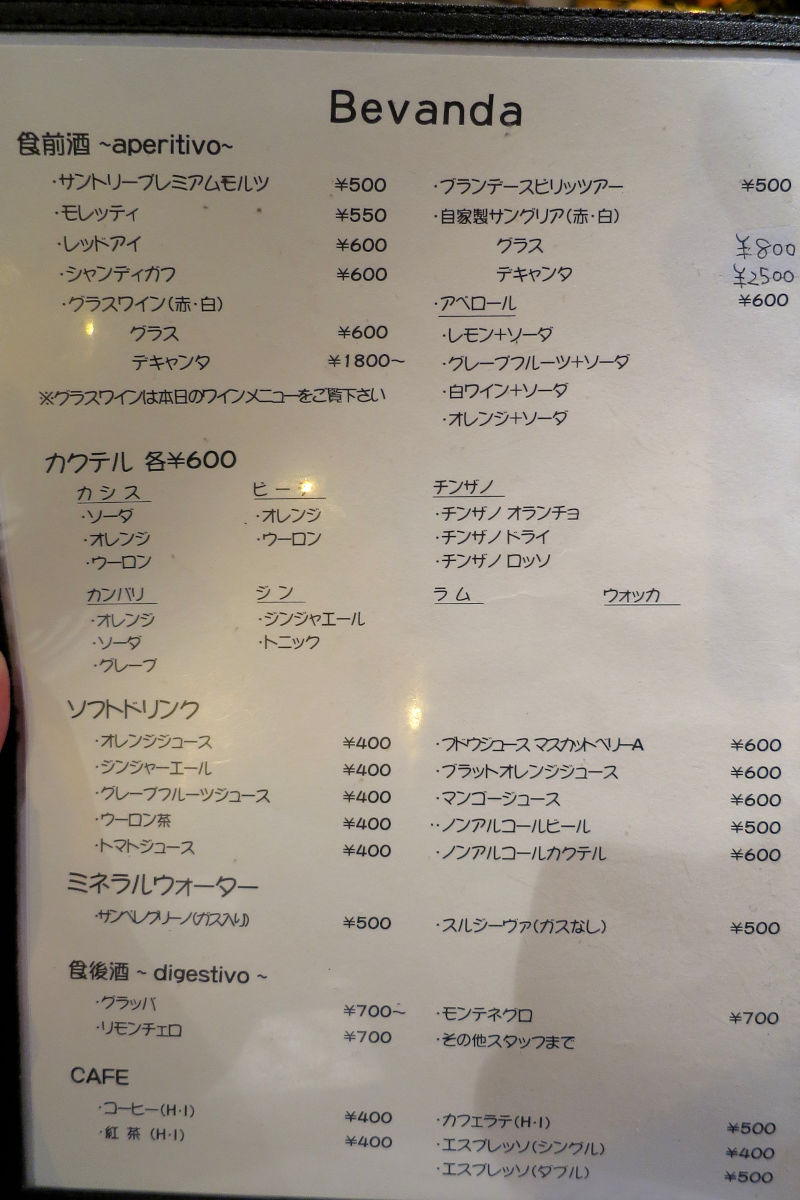 Bevanda
食前酒 ~aperitivo~
・サントリープレミアムモルツ ¥500
・モレッティ ¥550
・レッドアイ ¥600
・シャンディガフ ¥600
・グラスワイン(赤・白)
グラス ¥600
デキャンタ ¥1800~
※グラスワインは本日のワインメニューをご覧下さい
・ブランデースピリッツアー ¥500
・自家製サングリア(赤・白)
グラス ¥800
デキャンタ ¥2500
・アペロール ¥600
・レモン+ソーダ
・グレープフルーツ+ソーダ
・白ワイン+ソーダ
・オレンジ+ソーダ
カクテル 各¥600
カシス
・ソーダ
・オレンジ
・ウーロン
・オレンジ
・ウーロン
チンザノ
・チンザノ オランチョ
・チンザノ ドライ
・チンザノ ロッソ
カンパリ
・オレンジ
・ソーダ
・グレープ
ジン
・ジンジャエール
・トニック
ラム
ウォッカ
ソフトドリンク
・オレンジジュース ¥400
・ジンジャーエール ¥400
・グレープフルーツジュース ¥400
・ウーロン茶 ¥400
・トマトジュース ¥400
・ブドウジュース マスカットベリーA ¥600
・ブラットオレンジジュース ¥600
・マンゴージュース ¥600
・・ノンアルコールビール ¥500
・ノンアルコールカクテル ¥600
ミネラルウォーター
・サンペレグリーノ(ガス入り) ¥500
・スルジーヴァ(ガスなし) ¥500
食後酒 ~ digestivo ~
・グラッパ ¥700~
・リモンチェロ ¥700
・モンテネグロ ¥700
・その他スタッフまで
CAFE
・コーヒー(H・I) ¥400
・紅茶 (H・I) ¥400
・カフェラテ(H・I) ¥500
・エスプレッソ(シングル) ¥400
・エスプレッソ(ダブル) ¥500